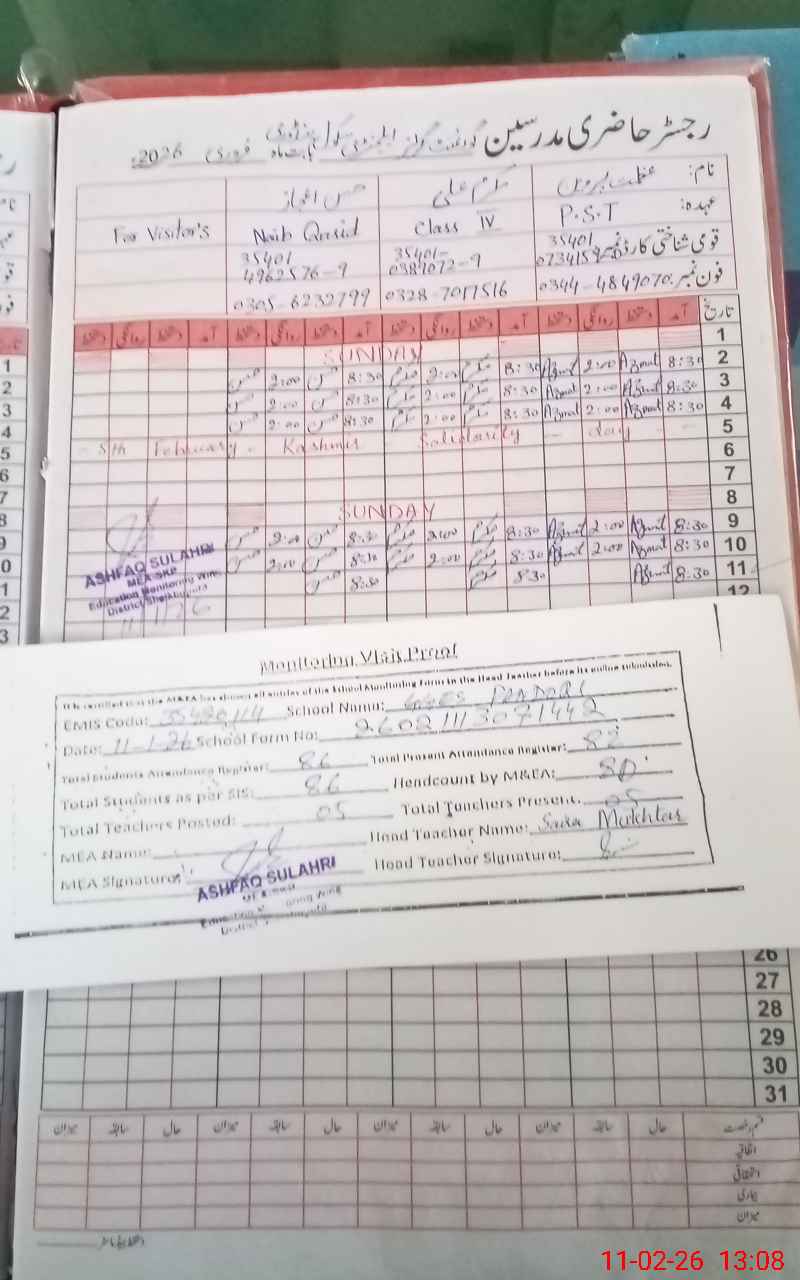 رجسٹر حاضری مدرسین گورنمنٹ گرلز ایلیمنٹری سکول پنڈوری بابت ماہ فروری 2026ء
نام: عظمت پروین مکرم علی حسن اعجاز
عہدہ: P.S.T Class IV Naib Qasid For Visitor's
قومی شناختی کارڈ نمبر 35401 35401-0389072-9 35401 4962576-9
فون نمبر 0344-4849070 0328-7017516 0305-6232799
تاریخ آمد دستخط روانگی دستخط آمد دستخط روانگی دستخط آمد دستخط روانگی دستخط آمد دستخط روانگی دستخط
1 SUNDAY
2 8:30 Azmat 2:00 Azmat 8:30 مکرم 2:00 مکرم 8:30 حسن 2:00 حسن
3 8:30 Azmat 2:00 Azmat 8:30 مکرم 2:00 مکرم 8:30 حسن 2:00 حسن
4 8:30 Azmat 2:00 Azmat 8:30 مکرم 2:00 مکرم 8:30 حسن 2:00 حسن
5 5th February - Kashmir Solidarity - day -
6
7
8 SUNDAY
9 8:30 Azmat 2:00 Azmat 8:30 مکرم 2:00 مکرم 8:30 حسن 2:00 حسن
10 8:30 Azmat 2:00 Azmat 8:30 مکرم 2:00 مکرم 8:30 حسن 2:00 حسن
11 8:30 Azmat 8:30 مکرم 8:30 حسن
12
ASHFAQ SULAHRI
MEA SKP
Education Monitoring Wing
District Sheikhupura
Monitoring Visit Proof
It is certified that the MEA has shown all entries of the School Monitoring Form to the Head Teacher before its online submission.
EMIS Code: 35420114 School Name: GGES PANDORI
Date: 11-1-26 School Form No: 26021113071442
Total Students Attendance Register: 86 Total Present Attendance Register: 82
Total Students as per SIS: 86 Headcount by M&EA: 80
Total Teachers Posted: 05 Total Teachers Present. 05
MEA Name: Head Teacher Name: Saira Mukhtar
MEA Signature: Head Teacher Signature:
ASHFAQ SULAHRI
26
27
28
29
30
31
قسم رخصت حال سابقہ میزان حال سابقہ میزان حال سابقہ میزان حال سابقہ میزان
اتفاقیہ
استحقاقی
بیماری
میزان
11-02-26 13:08